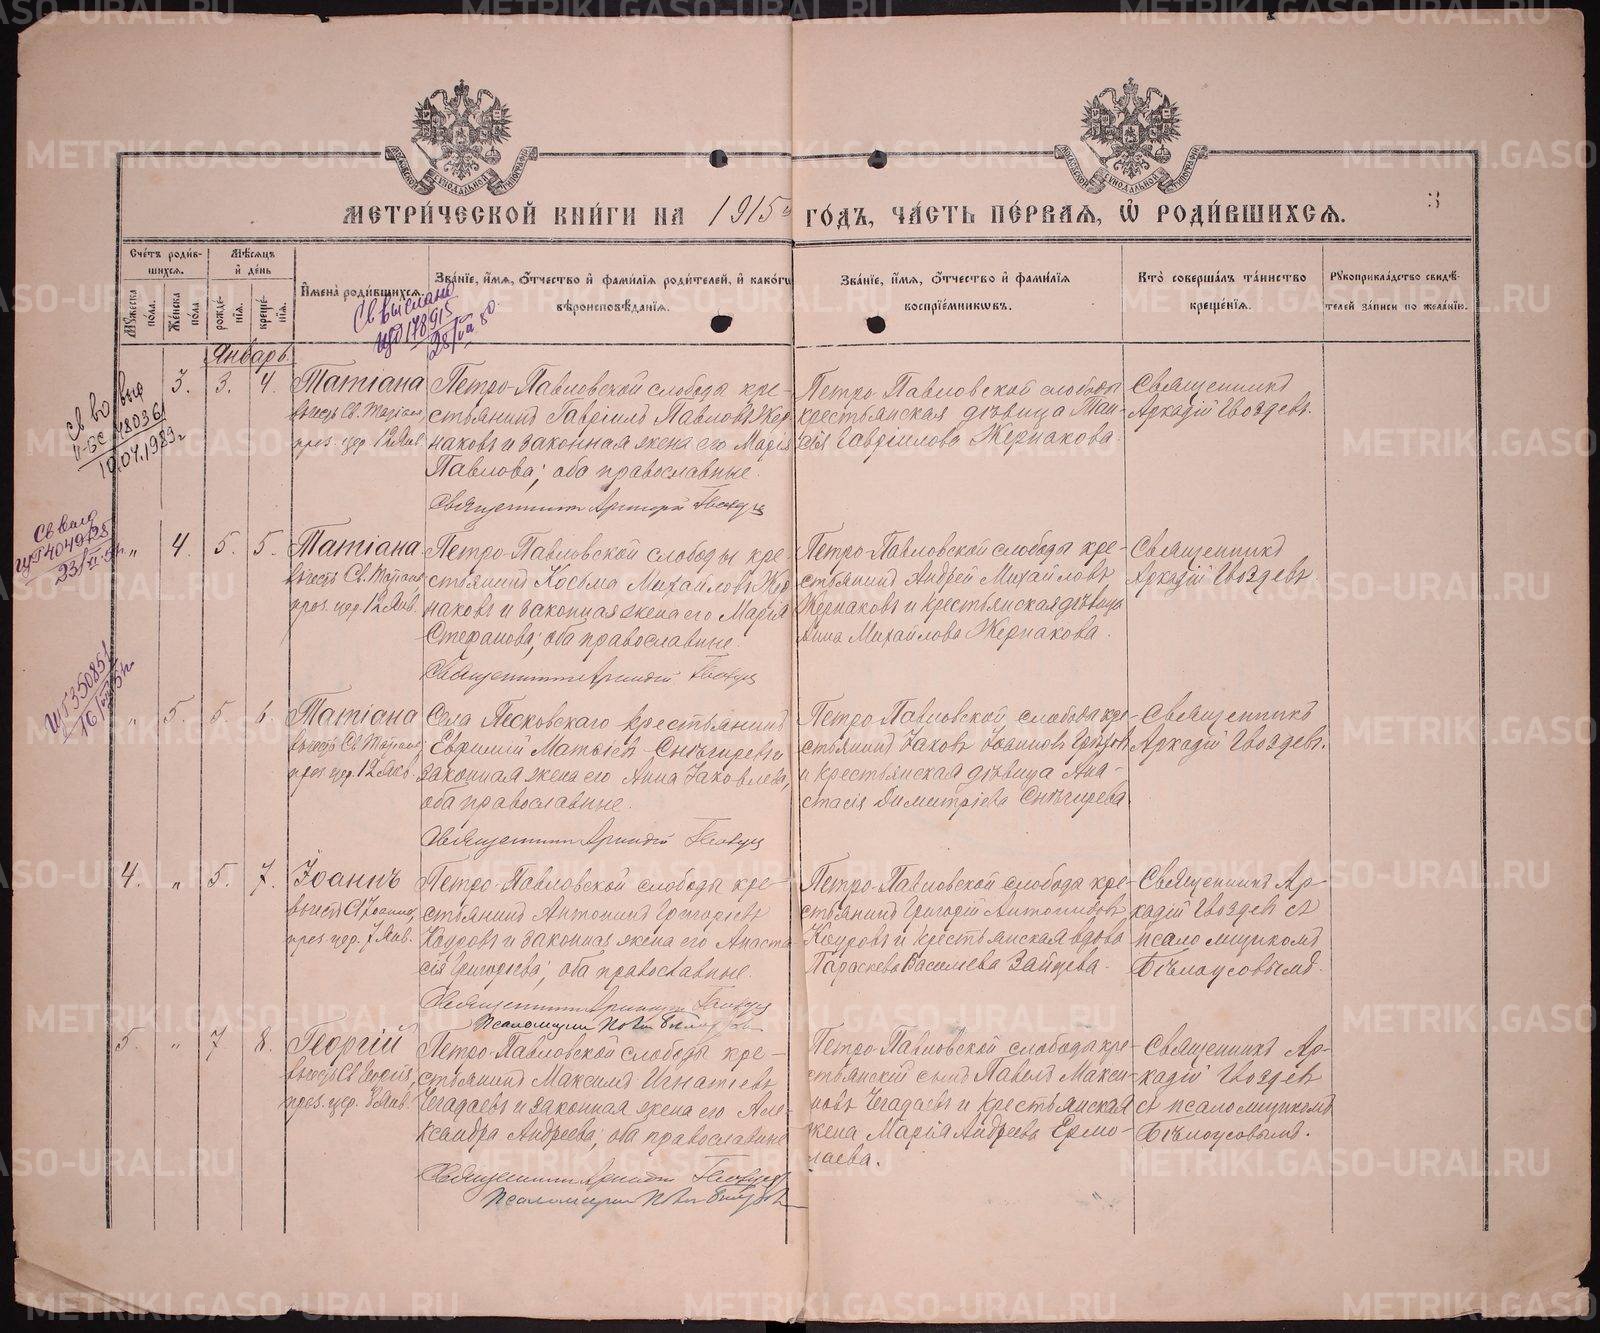 МЕТРИ́ЧЕСКОЙ КНИ́ГИ НА 1915й ГО́ДЪ, ЧА́СТЬ ПЕ́РВАѦ, Ѡ҆ РОДИ́ВШИХСѦ.
3
Сче́тъ роди́в-
шихсѧ.
Мꙋ́жеска пола.
Же́нска по́ла
Мѣ́сѧцъ
и҆ де́нь
рожде́-
нїѧ.
креще́-
нїѧ.
И҆мена̀ роди́вшихсѧ.
Зва́нїе, и҆́мѧ, ѻ҆́тчество и҆ фами́лїѧ роди́телей, и҆ како́гѡ
вѣроисповѣ́данїѧ.
Зва́нїе, и҆́мѧ, ѻ҆́тчество и҆ фами́лїѧ
воспрїе́мникѡвъ.
Кто̀ соверша́лъ та́инство
креще́нїѧ.
Рꙋкоприкла́дство свидѣ́-
телей за́писи по жела́нїю.
Январь
3. 3. 4.
Татіана
въ честь Св. Татіаны
праз. цер. 12 Янв.
Петро-Павловской слободы кре-
стьянинъ Гавріилъ Павловъ Жер-
наковъ и законная жена его Марія
Павлова; оба православные.
Священникъ Аркадій Гвоздевъ
Петро-Павловской слободы
крестьянская дѣвица Таи-
сія Гавріилова Жернакова.
Священникъ
Аркадій Гвоздевъ.
" 4. 5. 5.
Татіана
въ честь Св. Татіаны
праз. цер. 12 Янв.
Петро-Павловской слободы кре-
стьянинъ Косьма Михайловъ Жер-
наковъ и законная жена его Марія
Стефанова; оба православные.
Священникъ Аркадій Гвоздевъ
Петро-Павловской слободы кре-
стьянинъ Андрей Михайловъ
Жернаковъ и крестьянская дѣвица
Анна Михайлова Жернакова.
Священникъ
Аркадій Гвоздевъ.
" 5. 5. 6.
Татіана
въ честь Св. Татіаны,
праз. цер. 12 Янв.
Села Песковскаго крестьянинъ
Евфимій Матѳіевъ Снѣгиревъ и
законная жена его Анна Іаковлева,
оба православные.
Священникъ Аркадій Гвоздевъ
Петро-Павловской слободы кре-
стьянинъ Іаковъ Іоанновъ
и крестьянская дѣвица Ана-
стасія Димитріева Снѣгирева.
Священникъ
Аркадій Гвоздевъ.
4. " 5. 7.
Іоаннъ
въ честь Св. Іоанна,
праз. цер. 7 Янв.
Петро-Павловской слободы кре-
стьянинъ Антонинъ Григорьевъ
Коуровъ и законная жена его Анаста-
сія Григорьева; оба православные.
Священникъ Аркадій Гвоздевъ
Псаломщикъ
Петро-Павловской слободы кре-
стьянинъ Григорій Антониновъ
Коуровъ и крестьянская вдова
Параскева Васильева Зайцева.
Священникъ Ар-
кадій Гвоздевъ съ
псаломщикомъ
Бѣлоусовымъ.
5. " 7. 8.
Георгій
въ честь Св. Георгія,
праз. цер. 8 Янв.
Петро-Павловской слободы кре-
стьянинъ Максимъ Игнатіевъ
Чегадаевъ и законная жена его Але-
ксандра Андреева; оба православные
Священникъ Аркадій Гвоздевъ
Псаломщикъ
Петро-Павловской слободы кре-
стьянскій сынъ Павелъ Макси-
мовъ Чегадаевъ и крестьянская
жена Марія Андреева Ермо-
лаева.
Священникъ Ар-
кадій Гвоздевъ
съ псаломщикомъ
Бѣлоусовымъ.
METRIKI.GASO-URAL.RU